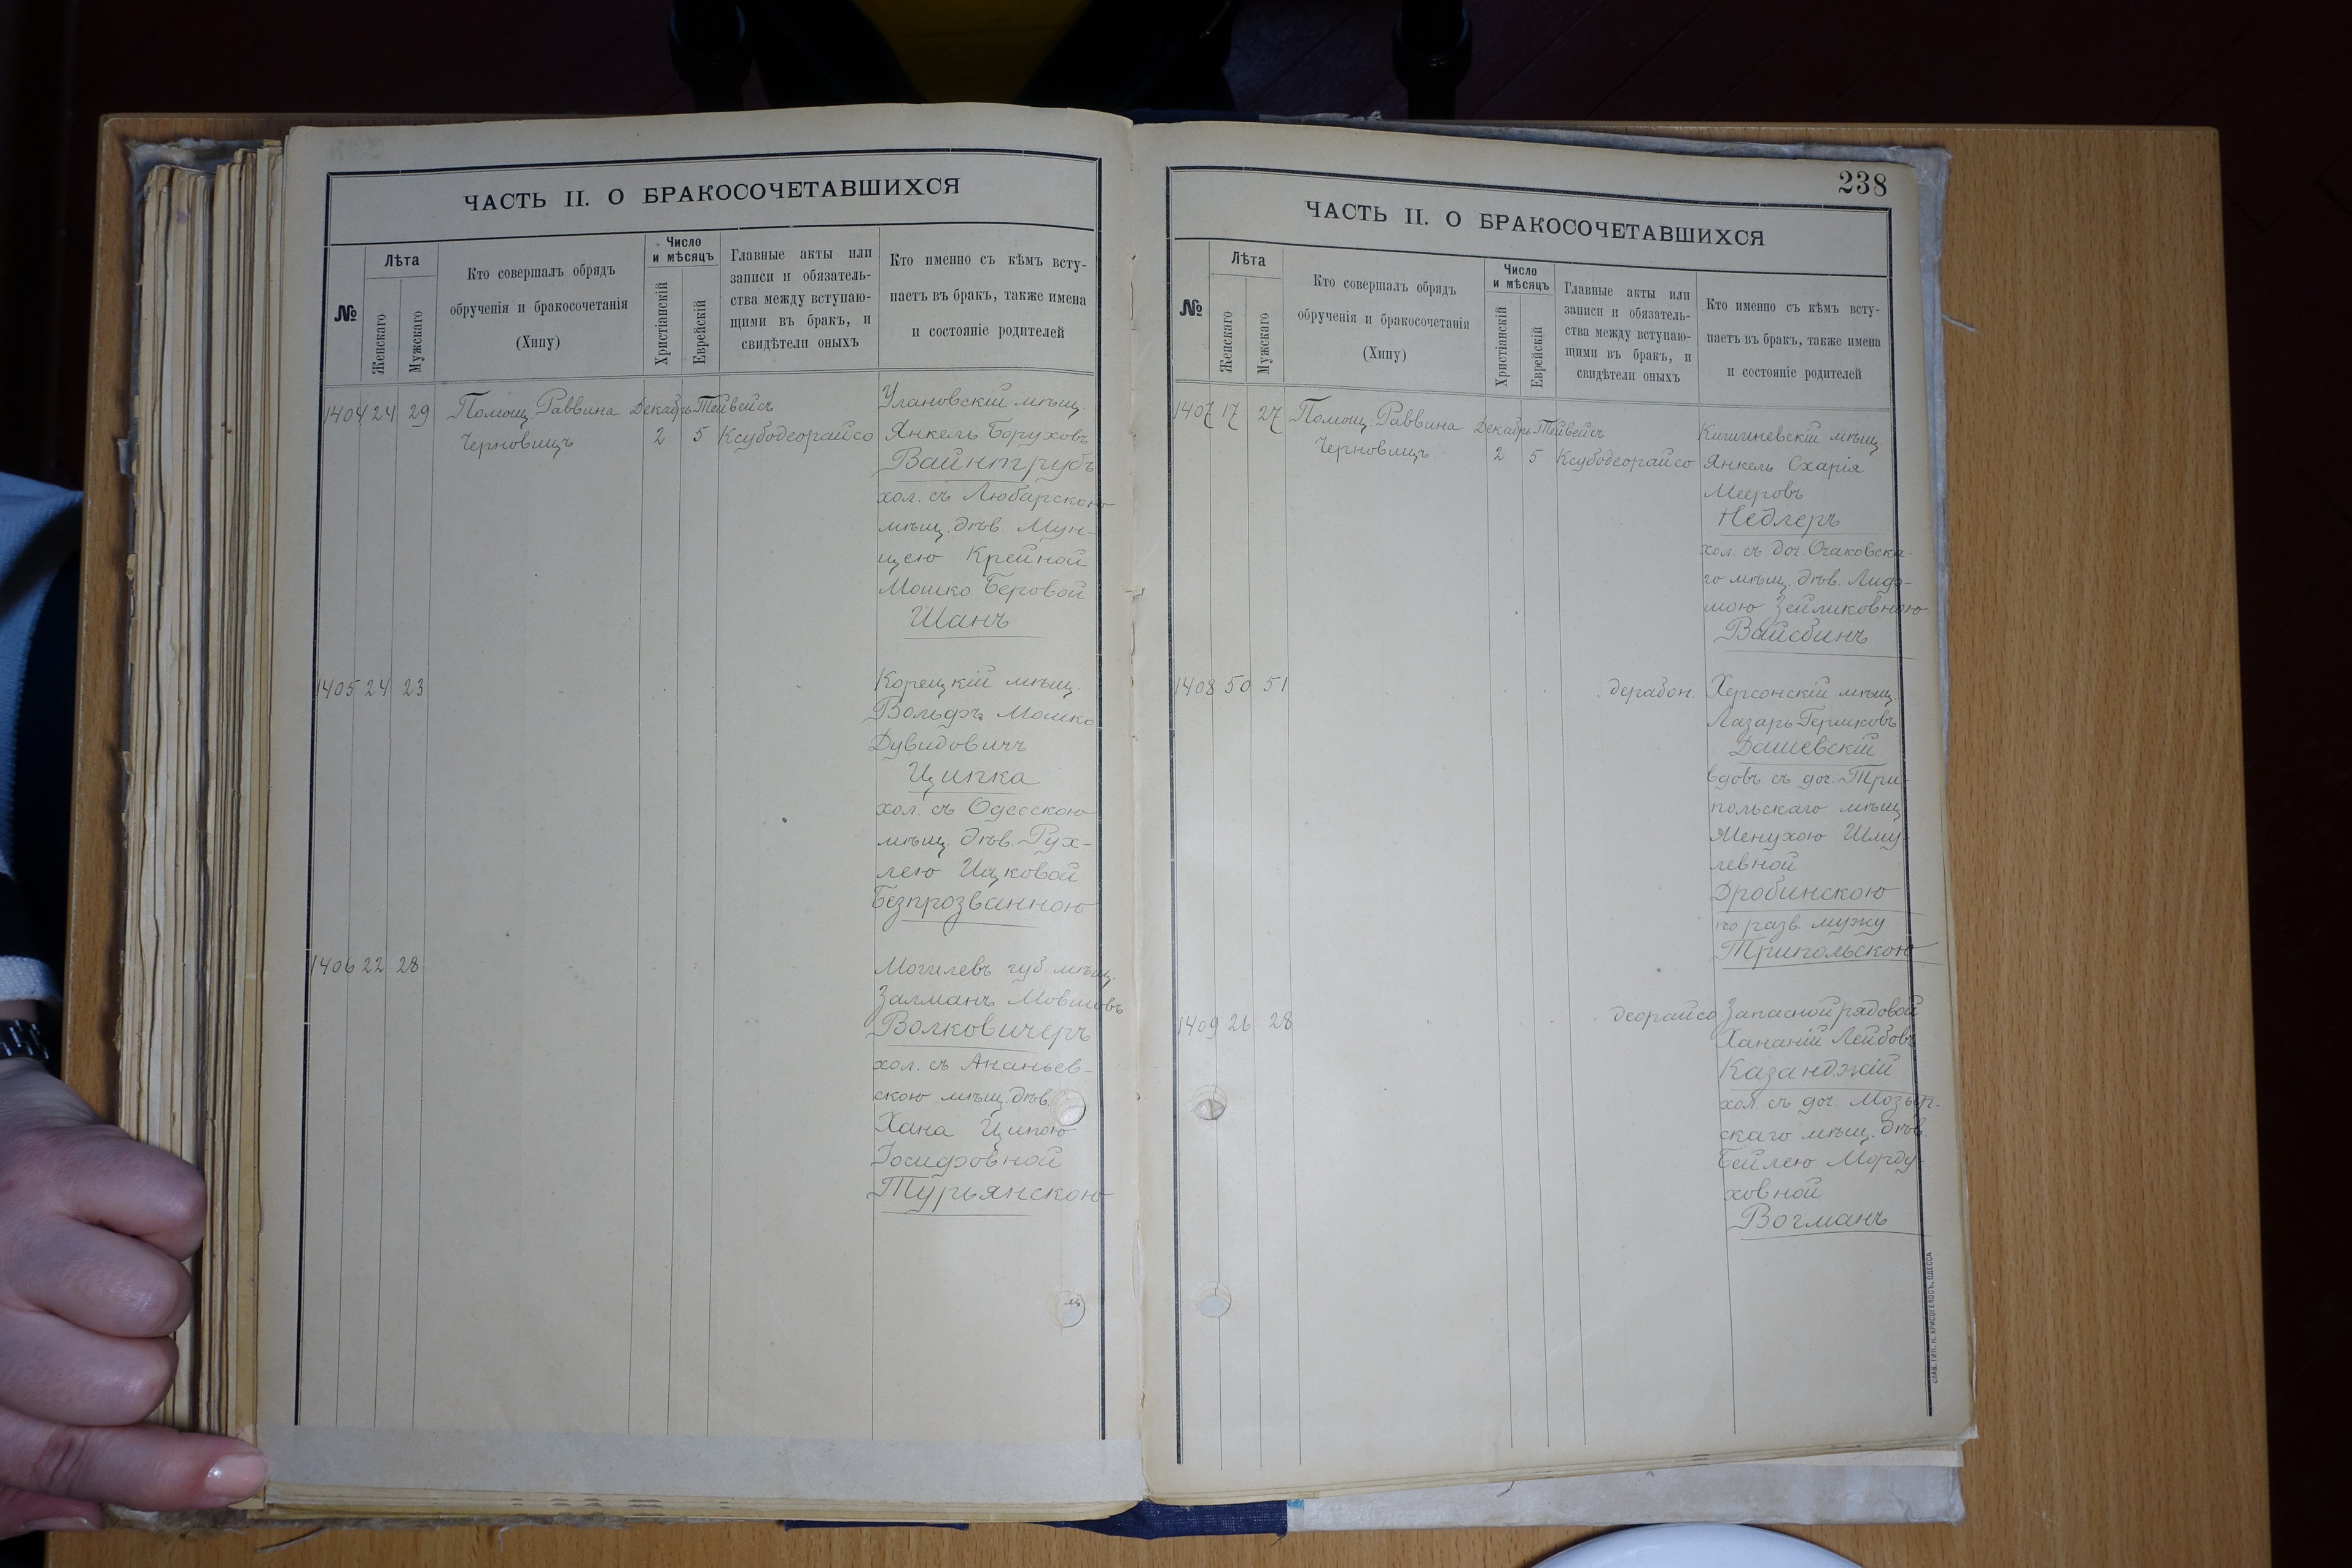 ЧАСТЬ II. О БРАКОСОЧЕТАВШИХСЯ
№
Лѣта
Женскаго
Мужскаго
Кто совершалъ обрядъ
обрученія и бракосочетанія
(Хипу)
Число
и мѣсяцъ
Христіанскій
Еврейскій
Главные акты или
записи и обязатель-
ства между вступаю-
щими въ бракъ, и
свидѣтели оныхъ
Кто именно съ кѣмъ всту-
паетъ въ бракъ, также имена
и состояніе родителей
1404 24 29 Помощ. Раввина Декабрь Тейвейсъ
Черновицъ 2 5 Ксубодеорайсо
Улановскій мѣщ.
Янкель Боруховъ
Вайнтрубъ
хол. съ Любарскою
мѣщ. дѣв. Мун-
цею Крейной
Мошко Беровой
Шанъ
1405 24 23 Корецкій мѣщ.
Вольфъ Мошко
Дувидовичъ
Ципка
хол. съ Одесскою
мѣщ. дѣв. Рух-
лею Ицковой
Безпрозванною
1406 22 28 Могилевъ губ. мѣщ.
Залманъ Мовшовъ
Волковичеръ
хол. съ Ананьев-
скою мѣщ. дѣв.
Хана Ципою
Іосифовной
Турьянскою
238
ЧАСТЬ II. О БРАКОСОЧЕТАВШИХСЯ
№
Лѣта
Женскаго
Мужскаго
Кто совершалъ обрядъ
обрученія и бракосочетанія
(Хипу)
Число
и мѣсяцъ
Христіанскій
Еврейскій
Главные акты или
записи и обязатель-
ства между вступаю-
щими въ бракъ, и
свидѣтели оныхъ
Кто именно съ кѣмъ всту-
паетъ въ бракъ, также имена
и состояніе родителей
1407 17 27 Помощ. Раввина Декабрь Тейвейсъ
Черновицъ 2 5 Ксубодеорайсо
Кишиневскій мѣщ.
Янкель Схарія
Мееровъ
Недлеръ
хол. съ доч. Очаковска-
го мѣщ. дѣв.
Зейликовною
Вайсбинъ
1408 50 51 дерабон. Херсонскій мѣщ.
Лазарь Гершковъ
Дашевскій
вдовъ съ доч. Три-
польскаго мѣщ.
Менухою Шму-
левной
Дробинскою
по разв. мужу
Трипольскою
1409 26 28 деорайсо Запасной рядовой
Хананій Лейбовъ
Казанджій
хол. съ доч. Мозыр-
скаго мѣщ. дѣв.
Бейлею Морду-
ховной
Вогманъ
СЛАВ. ТИП. Н. ХРИСОГЕЛОСЪ, ОДЕССА